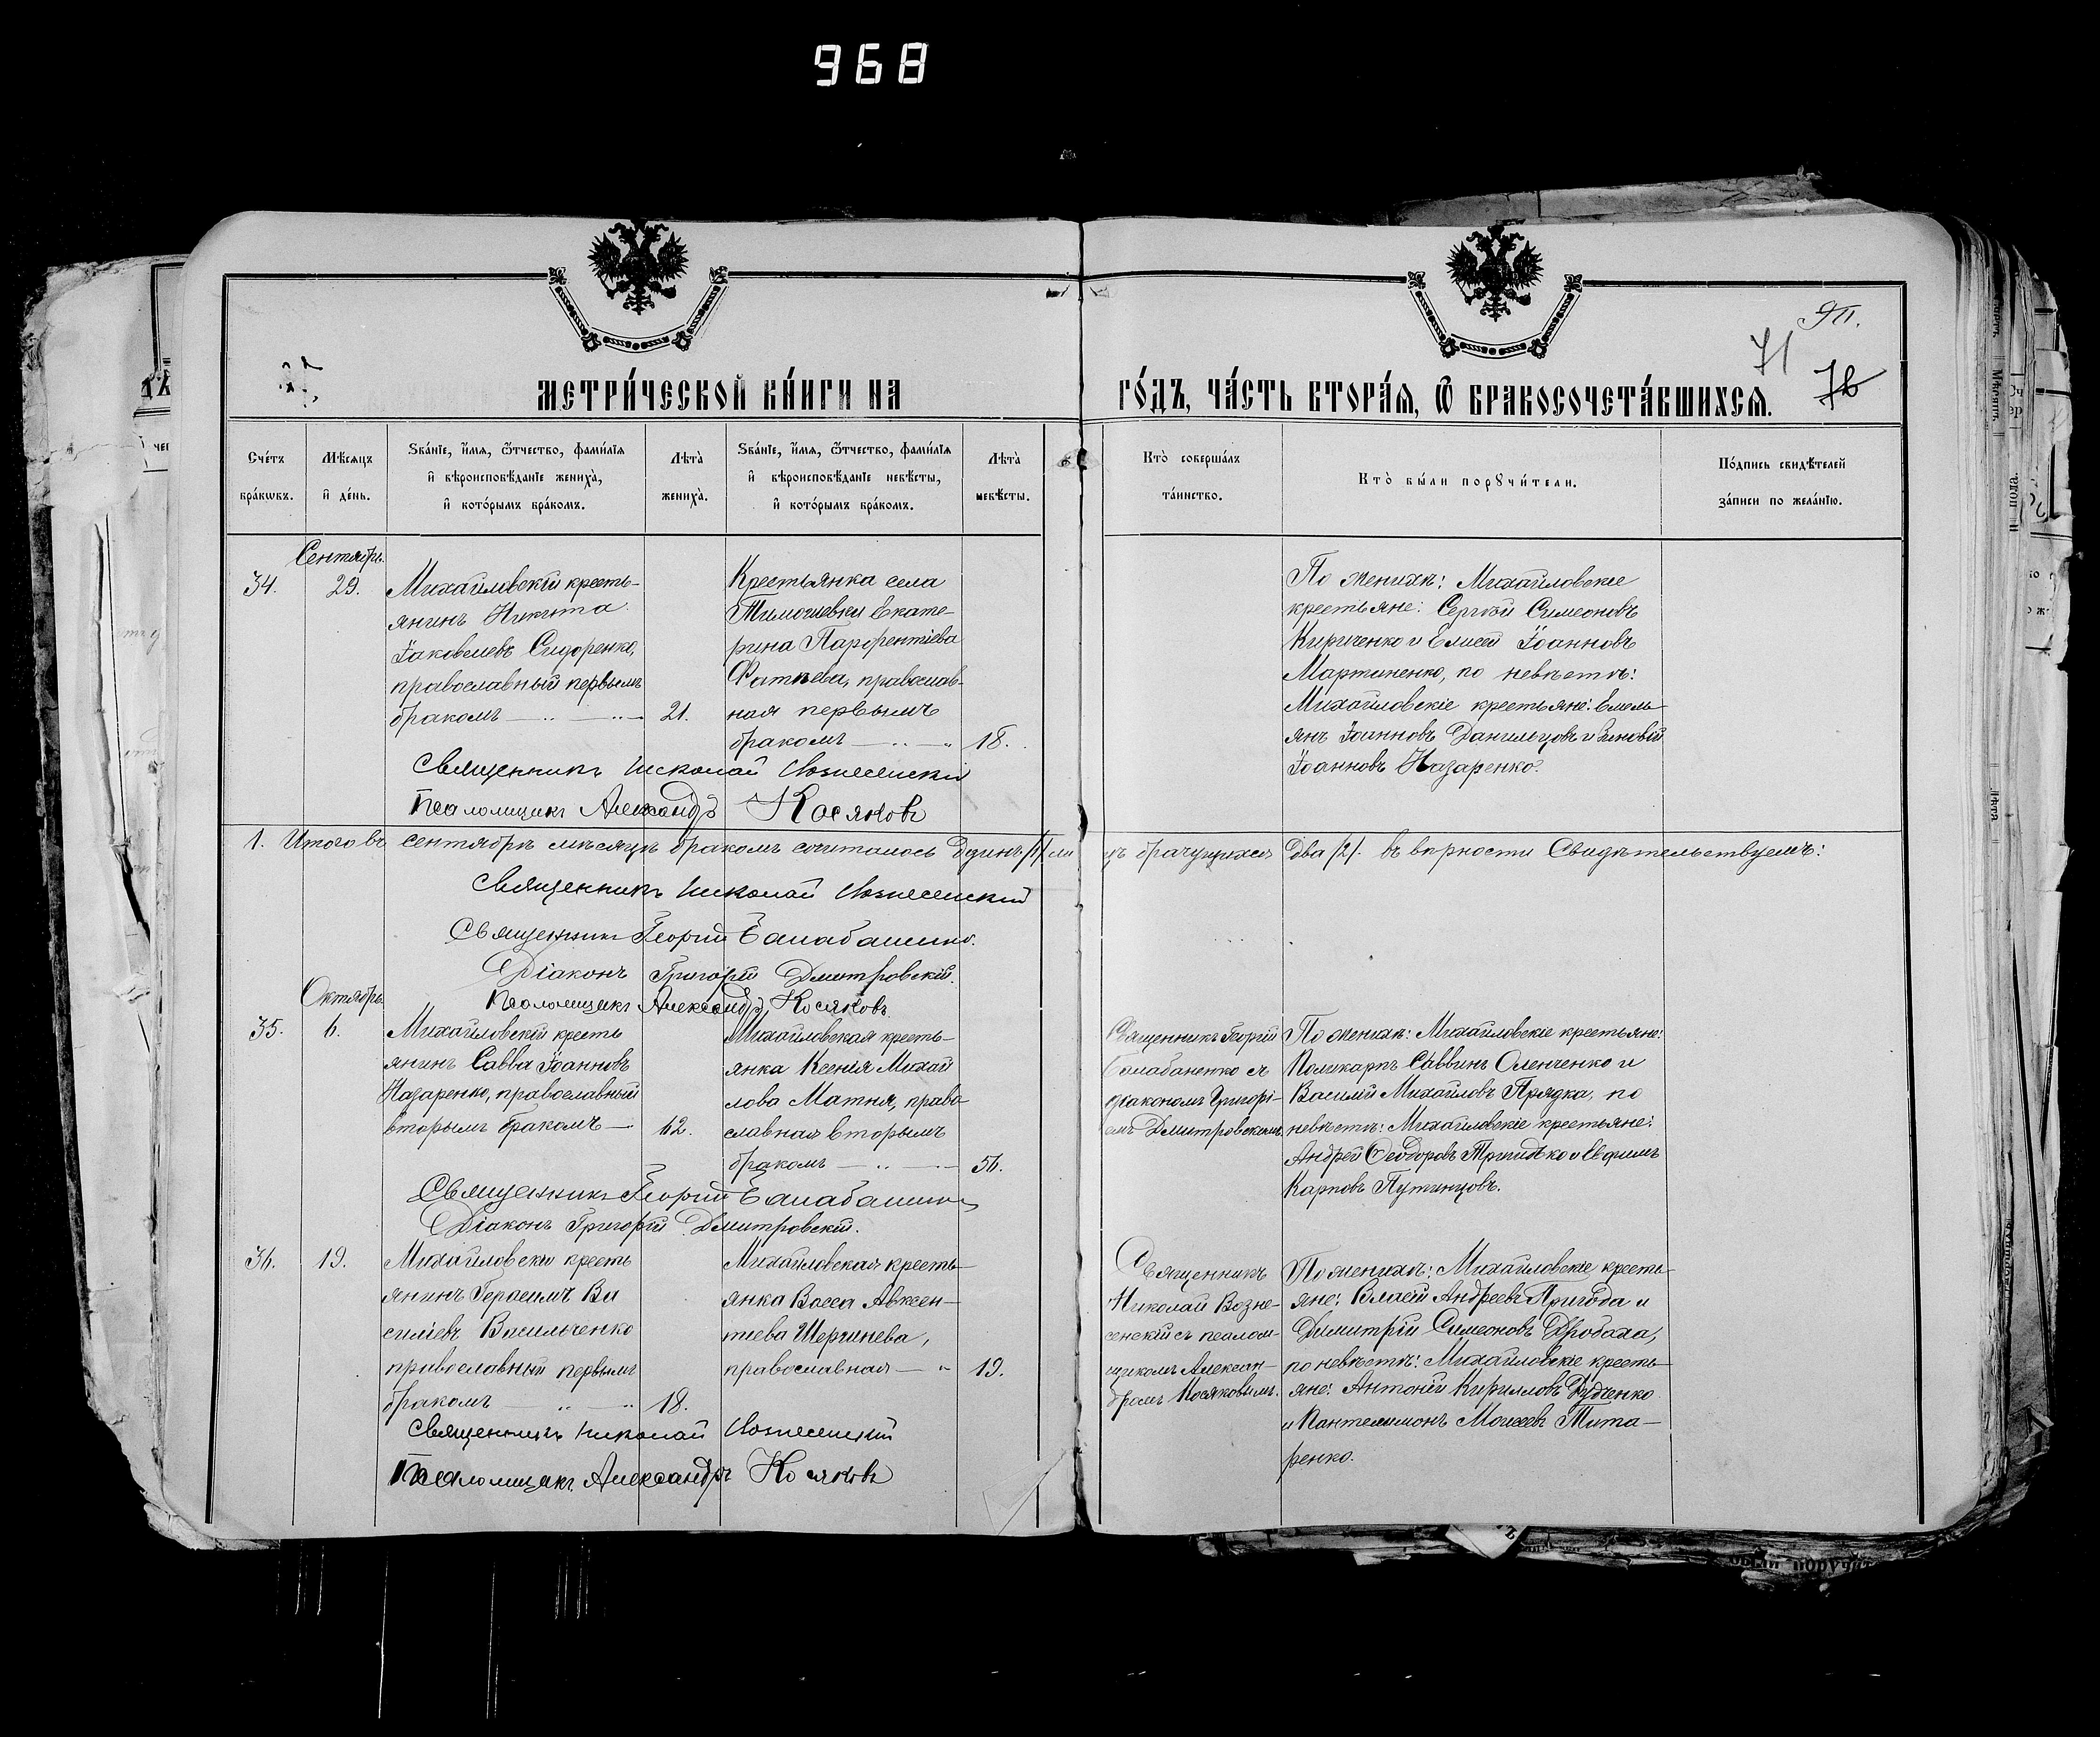 968
ЯП.
71
72
МЕТРИ́ЧЕСКОЙ КНИ́ГИ НА
ГО́ДЪ, ЧА́СТЬ ВТОРА́Я, Ѿ БРАКОСОЧЕТА́ВШИХСЯ.
Сче́тъ бра́кѡвъ.
Мѣ́сяцъ и҆ де́нь.
Зва́нїе, и҆́мя, ѻ҆́тчество, фами́лїя
и҆ вѣроисповѣ́данїе жениха̀,
и҆ кото́рымъ бра́комъ.
Лѣта̀ жениха̀.
Зва́нїе, и҆́мя, ѻ҆́тчество, фами́лїя
и҆ вѣроисповѣ́данїе невѣ́сты,
и҆ кото́рымъ бра́комъ.
Лѣта̀ невѣ́сты.
Кто̀ соверша́лъ
та́инство.
Кто̀ бы́ли порꙋчи́тели.
По́дпись свидѣ́телей
за́писи по жела́нїю.
Сентябрь
34.
29.
Михайловскій кресть-
янинъ Никита
Іаковлевъ Сидоренко,
православный первымъ
бракомъ
21.
Крестьянка села
Тимошевки Екате-
рина Парфентіева
православ-
ная первымъ
бракомъ
18.
По женихѣ: Михайловскіе
крестьяне: Сергѣй Симеоновъ
Кириченко и Елисей Іоанновъ
Мартиненко, по невѣстѣ:
Михайловскіе крестьяне: Емель-
янъ Іоанновъ Данильцовъ и Зиновій
Іоанновъ Назаренко.
Священникъ Николай Вознесенскій
Псаломщикъ Александръ Косяковъ
1. Итого въ сентябрѣ мѣсяцѣ бракомъ считалось одинъ /1/ ли
цъ брачущихся два /2/. въ вѣрности свидѣтельствуемъ:
Священникъ Николай Вознесенскій
Священникъ Георгій Балабаненко.
Діаконъ Григорій Дмитровскій.
Псаломщикъ Александръ Косяковъ
Октябрь
35.
6.
Михайловскій кресть
янинъ Савва Іоанновъ
Назаренко, православный
вторымъ бракомъ
62.
Михайловская кресть-
янка Ксенія Михай
лова Матня, право
славная вторымъ
бракомъ
56.
Священникъ Георгій
Балабаненко съ
діакономъ Григорі-
емъ Дмитровскимъ.
По женихѣ: Михайловскіе крестьяне:
Поликарпъ Саввинъ Оленченко и
Василій Михайловъ Прядка, по
невѣстѣ: Михайловскіе крестьяне:
Андрей Ѳеодоровъ и Евфимъ
Карповъ Путинцовъ.
Священникъ Георгій Балабаненко
Діаконъ Григорій Дмитровскій.
36.
19.
Михайловскій кресть
янинъ Герасимъ Ва
силіевъ Васильченко
православный первымъ
бракомъ
18.
Михайловская кресть-
янка Васса Авксен-
тіева Шергинева,
православная
19.
Священникъ
Николай Возне-
сенскій съ псалом-
щикомъ Алексан-
дромъ Косяковымъ.
По женихѣ: Михайловскіе кресть-
яне: Власій Андреевъ Пригода и
Димитрій Симеоновъ Дробаха,
по невѣстѣ: Михайловскіе кресть-
яне: Антоній Кирилловъ Дудченко
и Пантелимонъ Моисеевъ Тита-
ренко.
Священникъ Николай Вознесенскій
Псаломщикъ Александръ Косяковъ